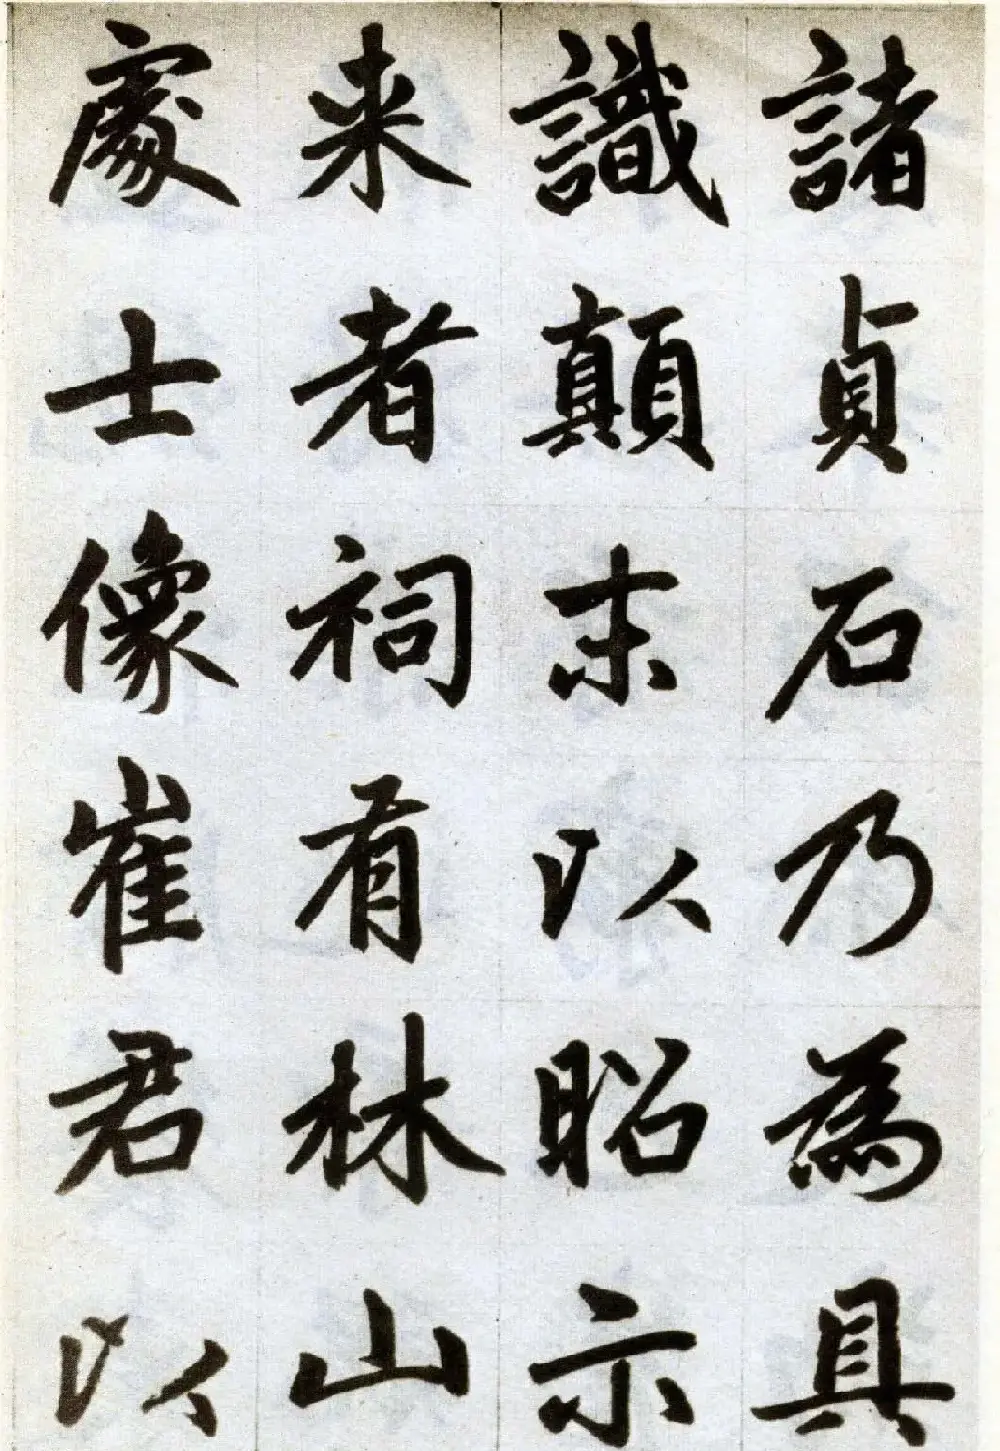 諸貞石乃為具
識顛末以昭示
来者祠有林山
處士像崔君以